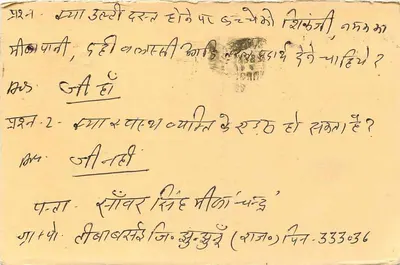 प्रश्न - क्या उल्टी दस्त होने पर बच्चे को शिकंजी, नमक का
पानी, दही व लस्सी आदि पदार्थ देने चाहिये?
उत्तर जी हाँ
प्रश्न-2- क्या स्वस्थ व्यक्ति के हो सकता है?
उत्तर जी नहीं
पता- साँवर सिंह मीणा 'चन्द्र'
ग्रा॰पो॰ टीबाबसई जि॰ झुन्झुनूँ (राज॰) पिन-333036